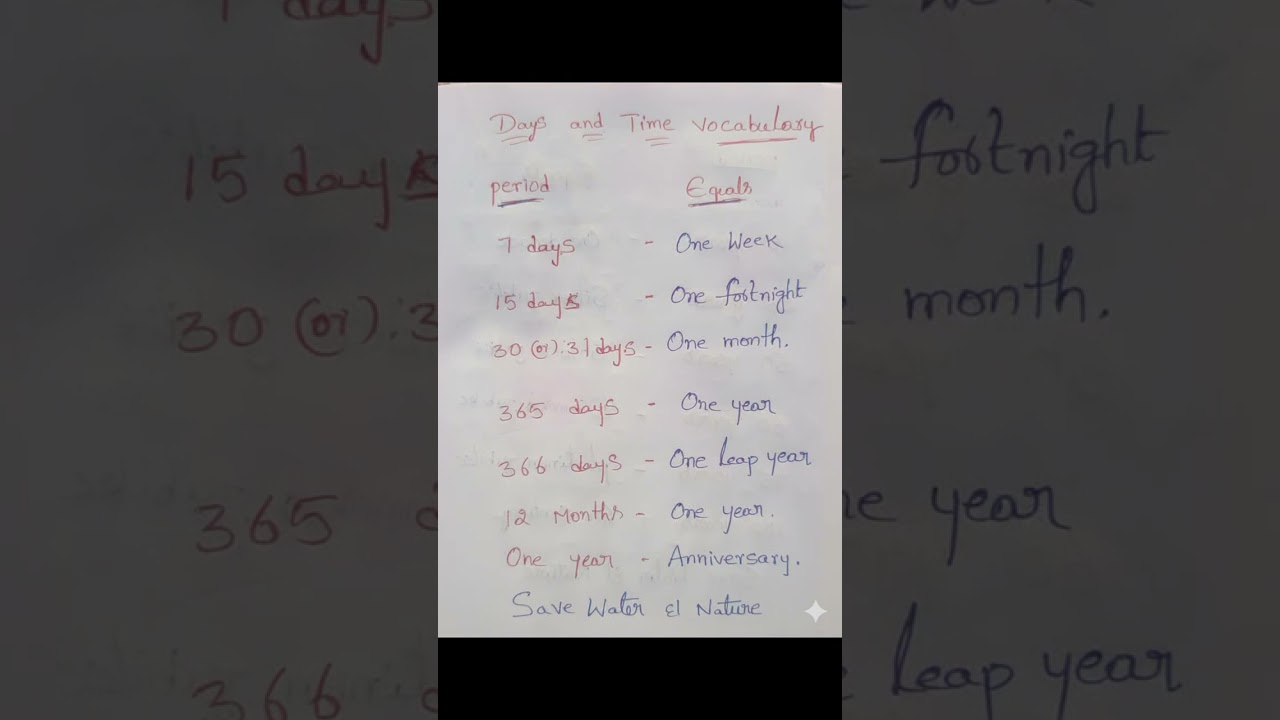 Days and Time Vocabulary
period Equals
7 days - One Week
15 days - One fortnight
30 (or). 31 days - One month.
365 days - One year
366 days - One Leap year
12 Months - One year.
One year - Anniversary.
Save Water & Nature